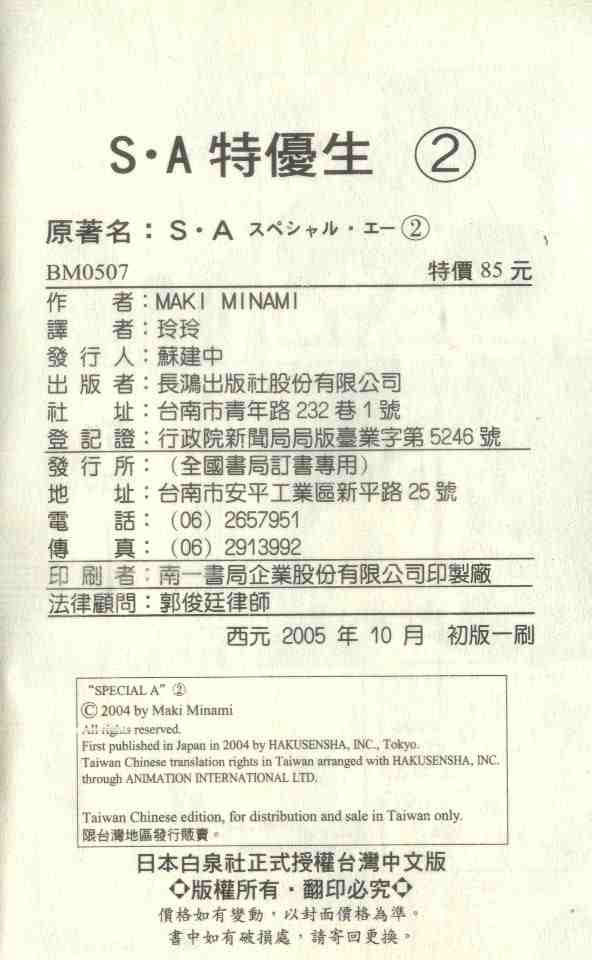 S·A 特優生 ②
原著名：S·A スペシャル・エー②
BM0507 特價 85 元
作者：MAKI MINAMI
譯者：玲玲
發行人：蘇建中
出版者：長鴻出版社股份有限公司
社址：台南市青年路 232 巷 1 號
登記證：行政院新聞局局版臺業字第 5246 號
發行所：（全國書局訂書專用）
地址：台南市安平工業區新平路 25 號
電話：（06）2657951
傳真：（06）2913992
印刷者：南一書局企業股份有限公司印製廠
法律顧問：郭俊廷律師
西元 2005 年 10 月 初版一刷
“SPECIAL A” ②
© 2004 by Maki Minami
All rights reserved.
First published in Japan in 2004 by HAKUSENSHA, INC., Tokyo.
Taiwan Chinese translation rights in Taiwan arranged with HAKUSENSHA, INC.
through ANIMATION INTERNATIONAL LTD.
Taiwan Chinese edition, for distribution and sale in Taiwan only.
限台灣地區發行販賣。
日本白泉社正式授權台灣中文版
◇版權所有・翻印必究◇
價格如有變動，以封面價格為準。
書中如有破損處，請寄回更換。